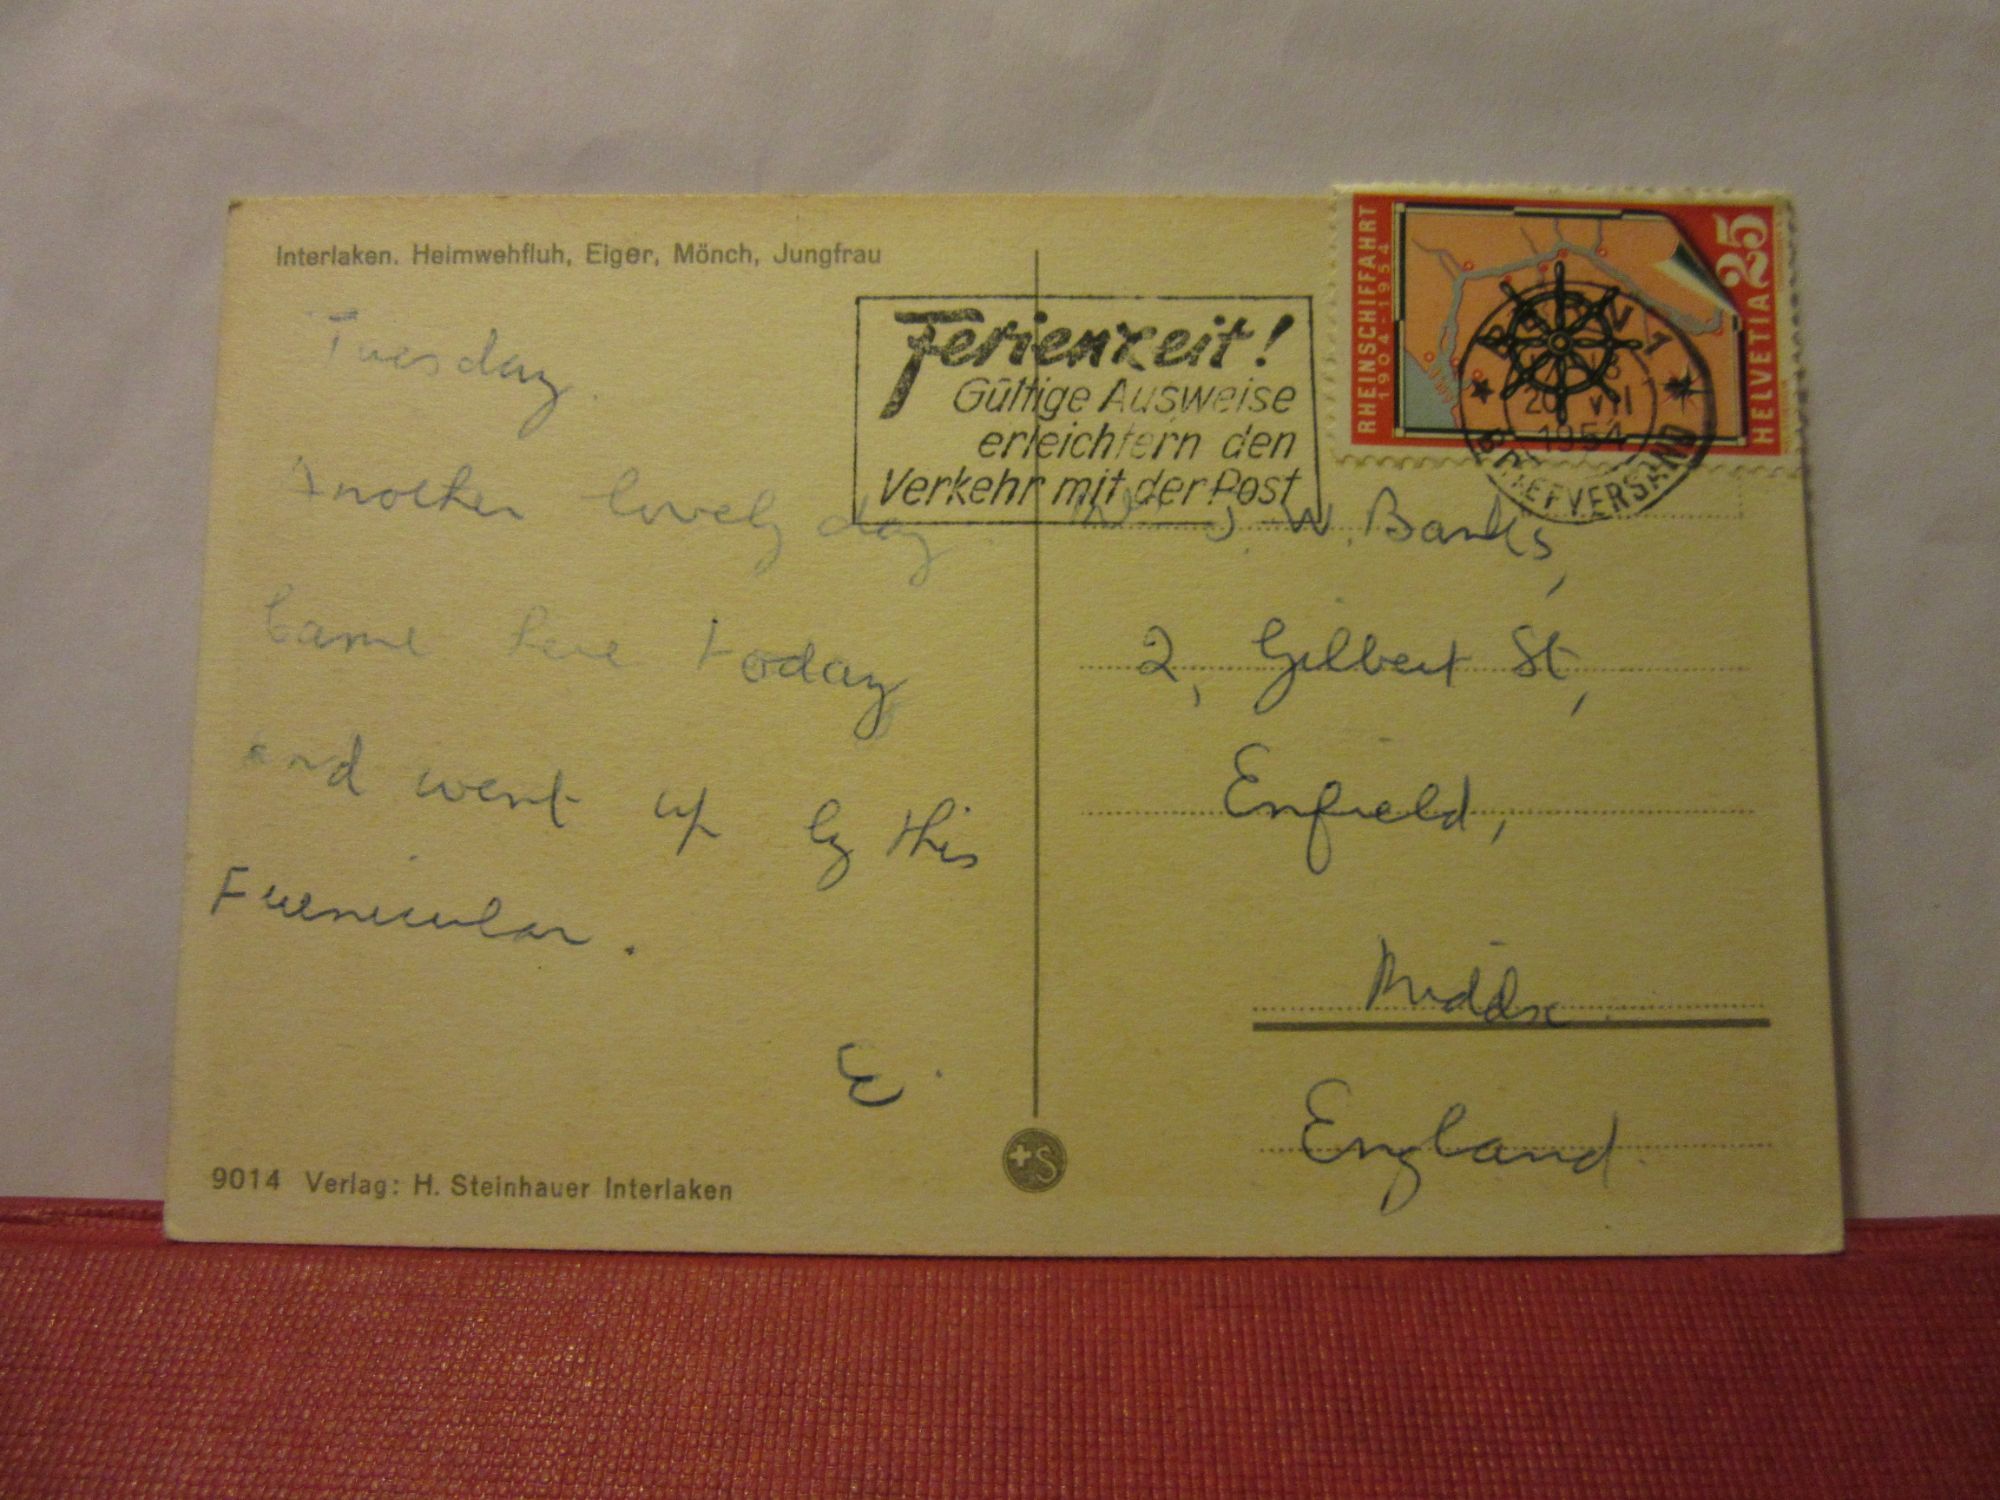 Interlaken. Heimwehfluh, Eiger, Mönch, Jungfrau
Tuesday.
Another lovely day.
Came here today
and went up by this
Fuenicular.
E.
9014 Verlag: H. Steinhauer Interlaken
Ferienzeit!
Gültige Ausweise
erleichtern den
Verkehr mit der Post
RHEINSCHIFFAHRT
1904-1954
HELVETIA 25
BERN 1
20 VII
1954
BRIEFVERSAND
J. W. Banks,
2, Gilbert St,
Enfield,
Middx.
England.
+S